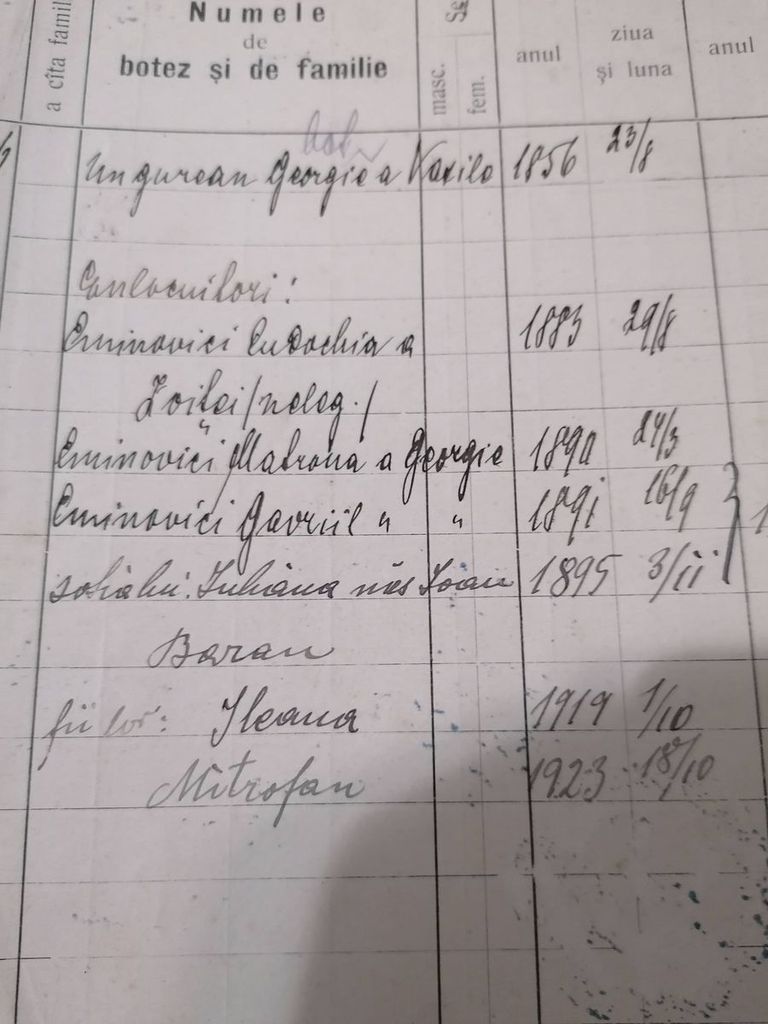 a cîta famil
Numele
de
botez și de familie
Se
masc.
fem.
anul
ziua
și luna
anul
Ungurean Georgie a Vasile 1856 23/8
Conlocuitori:
Eminovici Eudochia a 1883 29/8
Zoitei /neleg./
Eminovici Matrona a Georgie 1890 24/3
Eminovici Gavriil " " 1891 16/9
soția lui: Iuliana năs Ioan 1895 3/11
Baran
fii lor: Ileana 1919 1/10
Mitrofan 1923 18/10